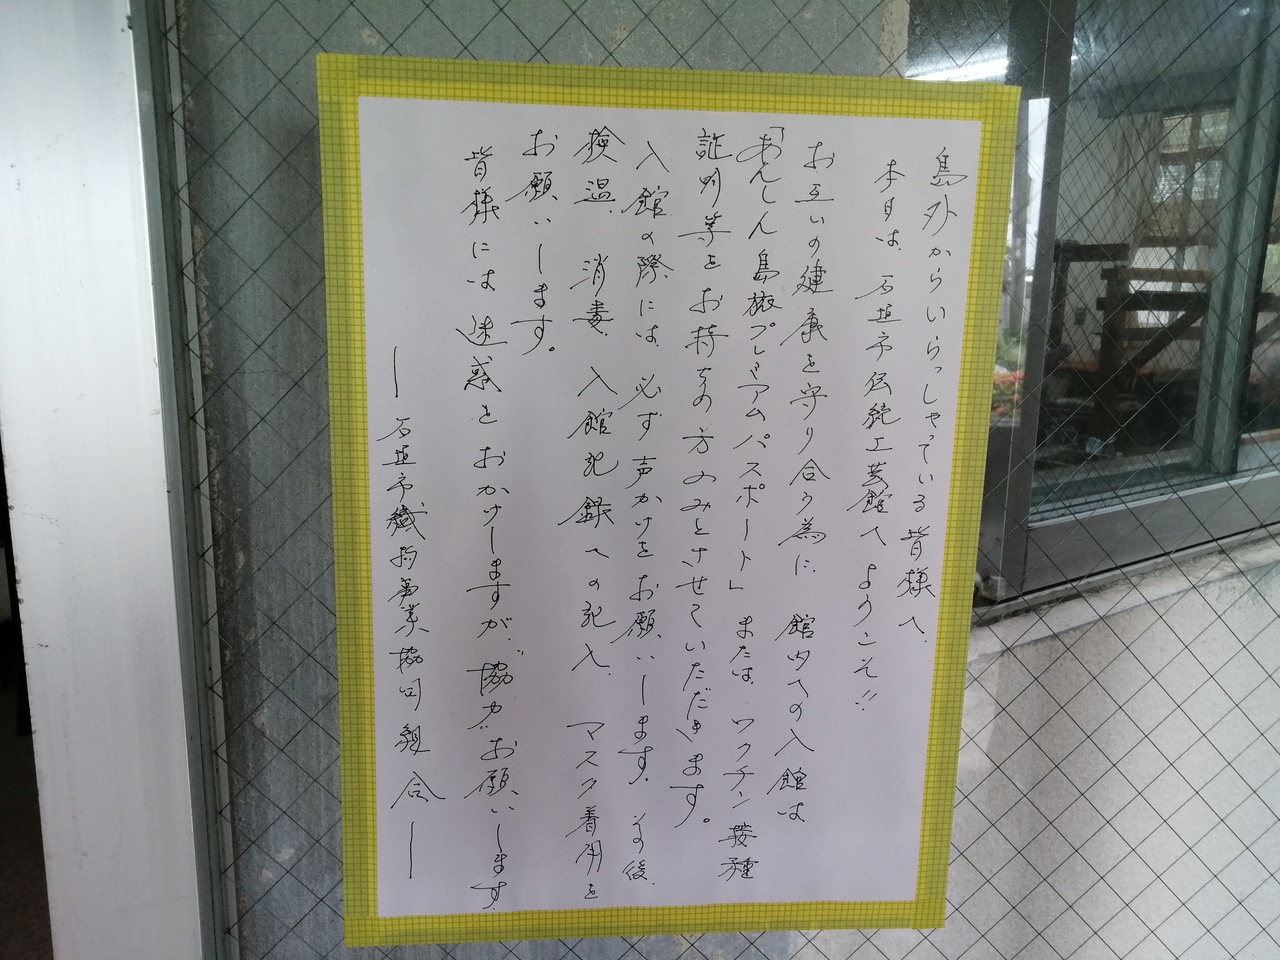 島外からいらっしゃっている皆様へ
本日は、石垣市伝統工芸館へようこそ!!
お互いの健康を守り合う為に、館内への入館は
「あんしん島旅プレミアムパスポート」または、ワクチン接種
証明等をお持ちの方のみとさせていただきます。
入館の際には、必ず声かけをお願いします。その後、
検温、消毒、入館記録への記入、マスク着用を
お願いします。
皆様には迷惑をおかけしますが、協力お願いします。
―石垣市織物事業協同組合―